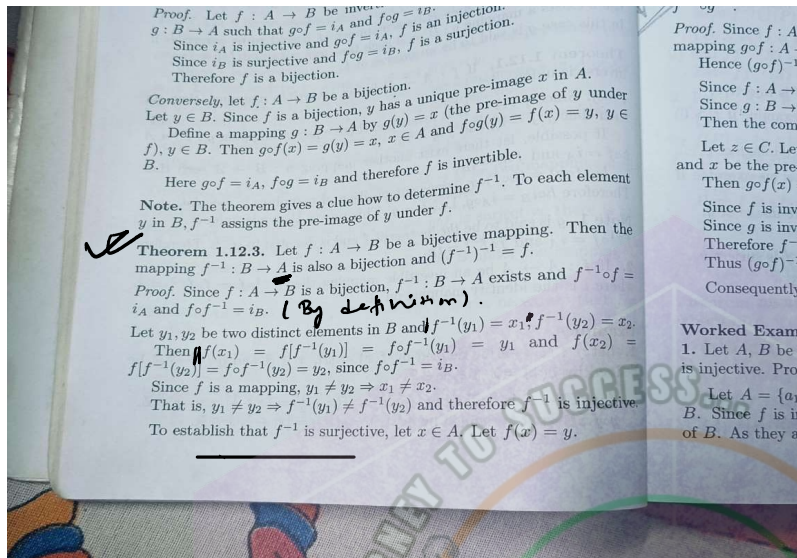 Proof. Let f : A → B be
g : B → A such that gof = i_A and fog = i_B.
Since i_A is injective and gof = i_A, f is an injection.
Since i_B is surjective and fog = i_B, f is a surjection.
Therefore f is a bijection.
Conversely, let f : A → B be a bijection.
Let y ∈ B. Since f is a bijection, y has a unique pre-image x in A.
Define a mapping g : B → A by g(y) = x (the pre-image of y under
f), y ∈ B. Then gof(x) = g(y) = x, x ∈ A and fog(y) = f(x) = y, y ∈
B.
Here gof = i_A, fog = i_B and therefore f is invertible.
Note. The theorem gives a clue how to determine f⁻¹. To each element
y in B, f⁻¹ assigns the pre-image of y under f.
Theorem 1.12.3. Let f : A → B be a bijective mapping. Then the
mapping f⁻¹ : B → A is also a bijection and (f⁻¹)⁻¹ = f.
Proof. Since f : A → B is a bijection, f⁻¹ : B → A exists and f⁻¹of =
i_A and fof⁻¹ = i_B. (By definition).
Let y₁, y₂ be two distinct elements in B and f⁻¹(y₁) = x₁, f⁻¹(y₂) = x₂.
Then f(x₁) = f[f⁻¹(y₁)] = fof⁻¹(y₁) = y₁ and f(x₂) =
f[f⁻¹(y₂)] = fof⁻¹(y₂) = y₂, since fof⁻¹ = i_B.
Since f is a mapping, y₁ ≠ y₂ ⇒ x₁ ≠ x₂.
That is, y₁ ≠ y₂ ⇒ f⁻¹(y₁) ≠ f⁻¹(y₂) and therefore f⁻¹ is injective.
To establish that f⁻¹ is surjective, let x ∈ A. Let f(x) = y.
Proof. Since f : A
mapping gof : A
Hence (gof)⁻¹
Since f : A →
Since g : B →
Then the com
Let z ∈ C. Le
and x be the pre
Then gof(x)
Since f is inv
Since g is inv
Therefore f⁻
Thus (gof)⁻¹
Consequently
Worked Exam
1. Let A, B be
is injective. Pro
Let A = {a₁
B. Since f is i
of B. As they a
NEY TO SUCCESS